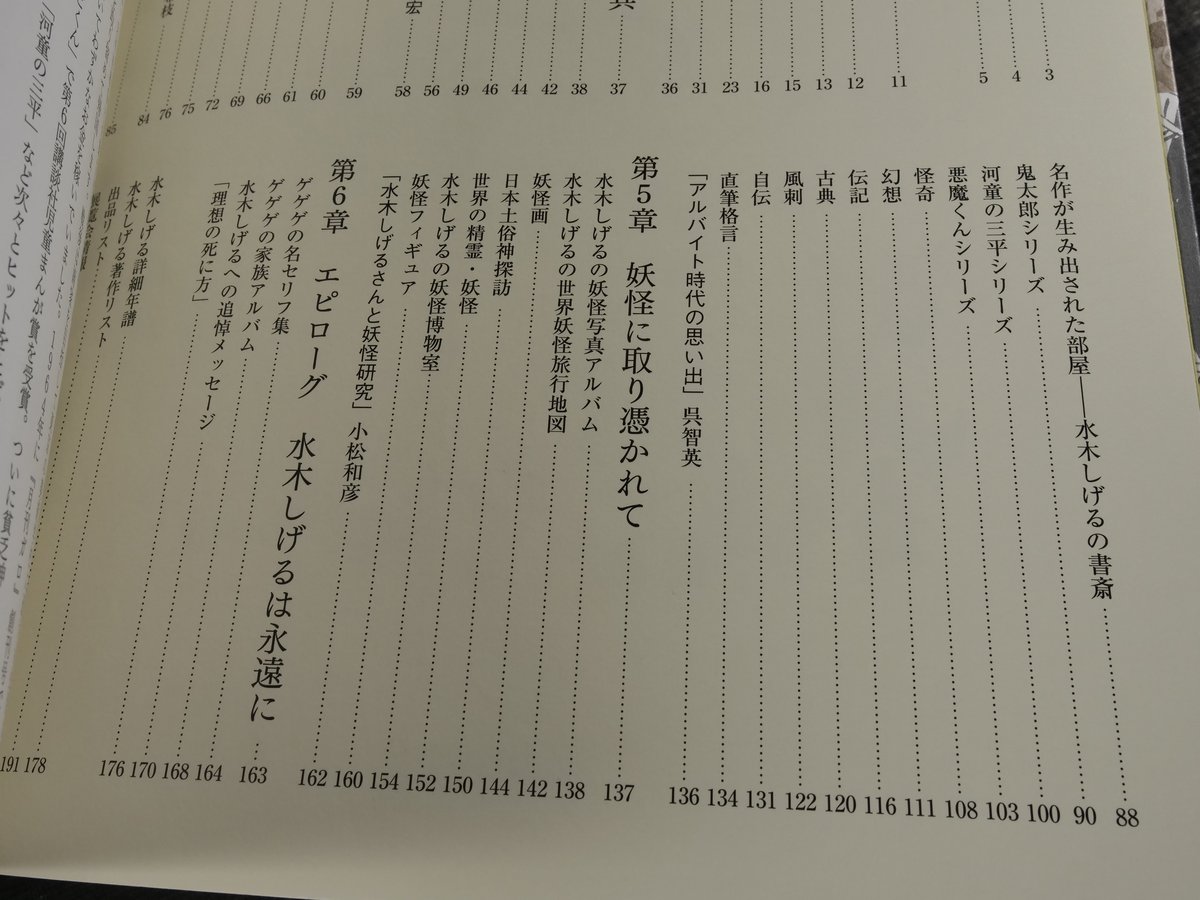 3
4
5
11
12
13
15
16
23
31
36
37
38
42
44
46
49
56
宏 58
59
60
61
66
69
72
75
枝 76
84
85
名作が生み出された部屋――水木しげるの書斎 88
鬼太郎シリーズ 90
河童の三平シリーズ 100
悪魔くんシリーズ 103
怪奇 108
幻想 111
伝記 116
古典 120
風刺 122
自伝 131
直筆格言 134
「アルバイト時代の思い出」 呉智英 136
第5章 妖怪に取り憑かれて 137
水木しげるの妖怪写真アルバム 138
水木しげるの世界妖怪旅行地図 142
妖怪画 144
日本土俗神探訪 150
世界の精霊・妖怪 152
水木しげるの妖怪博物室 154
妖怪フィギュア 160
「水木しげるさんと妖怪研究」 小松和彦 162
第6章 エピローグ 水木しげるは永遠に 163
ゲゲゲの名セリフ集 164
ゲゲゲの家族アルバム 168
水木しげるへの追悼メッセージ 170
「理想の死に方」 176
水木しげる詳細年譜 178
水木しげる著作リスト 191
出品リスト
展覧会情報
ていました。1964年に『月刊ガロ』
くん』で第6回講談社児童まんが賞を受賞。ついに貧乏神
「河童の三平」など次々とヒットを